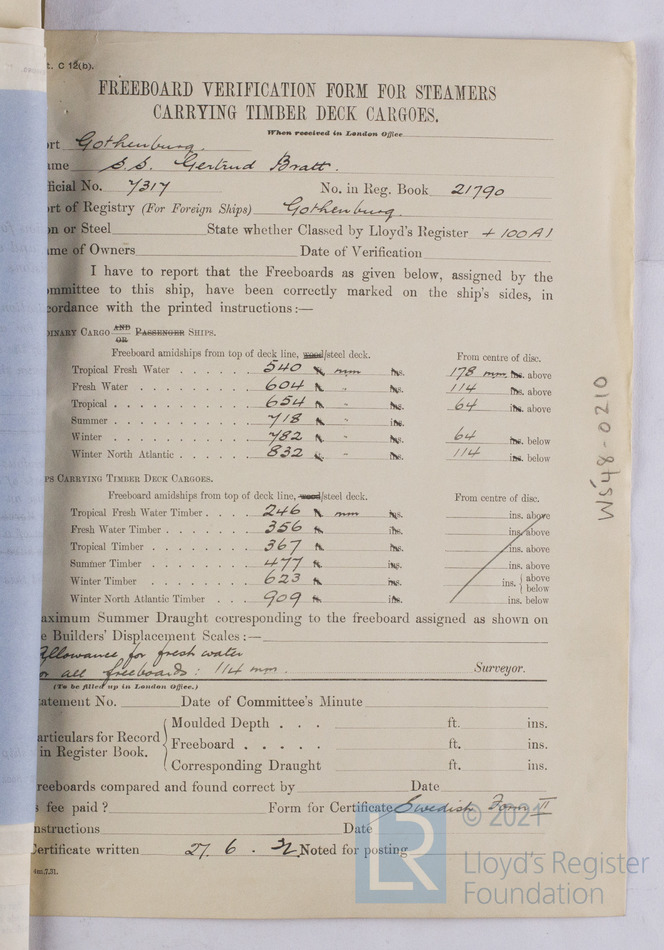 t. C 12(b).
FREEBOARD VERIFICATION FORM FOR STEAMERS
CARRYING TIMBER DECK CARGOES.
When received in London Office
ort Gothenburg.
ame S.S. Gertrud Bratt.
ficial No. 7317 No. in Reg. Book 21790
ort of Registry (For Foreign Ships) Gothenburg.
on or Steel State whether Classed by Lloyd's Register + 100A1
ame of Owners Date of Verification
I have to report that the Freeboards as given below, assigned by the
ommittee to this ship, have been correctly marked on the ship's sides, in
cordance with the printed instructions:—
DINARY CARGO AND OR PASSENGER SHIPS.
Freeboard amidships from top of deck line, wood/steel deck. From centre of disc.
Tropical Fresh Water 540 ft. mm ins. 178 mm ins. above
Fresh Water 604 ft. " ins. 114 ins. above
Tropical 654 ft. " ins. 64 ins. above
Summer 718 ft. " ins.
Winter 782 ft. " ins. 64 ins. below
Winter North Atlantic 832 ft. " ins. 114 ins. below
PS CARRYING TIMBER DECK CARGOES.
Freeboard amidships from top of deck line, wood/steel deck. From centre of disc.
Tropical Fresh Water Timber 246 ft. mm ins. ins. above
Fresh Water Timber 356 ft. ins. ins. above
Tropical Timber 367 ft. ins. ins. above
Summer Timber 477 ft. ins. ins. above
Winter Timber 623 ft. ins. ins. above below
Winter North Atlantic Timber 909 ft. ins. ins. below
aximum Summer Draught corresponding to the freeboard assigned as shown on
e Builders' Displacement Scales:—
Allowance for fresh water
or all freeboards: 114 mm. Surveyor.
(To be filled up in London Office.)
atement No. Date of Committee's Minute
articulars for Record in Register Book.
Moulded Depth . . . ft. ins.
Freeboard . . . . . ft. ins.
Corresponding Draught ft. ins.
reeboards compared and found correct by Date
s fee paid? Form for Certificate Swedish Form II
nstructions Date
Certificate written 27. 6. 32 Noted for posting
4m.7.31.
W548-0210
© 2021
LR
Lloyd's Register
Foundation